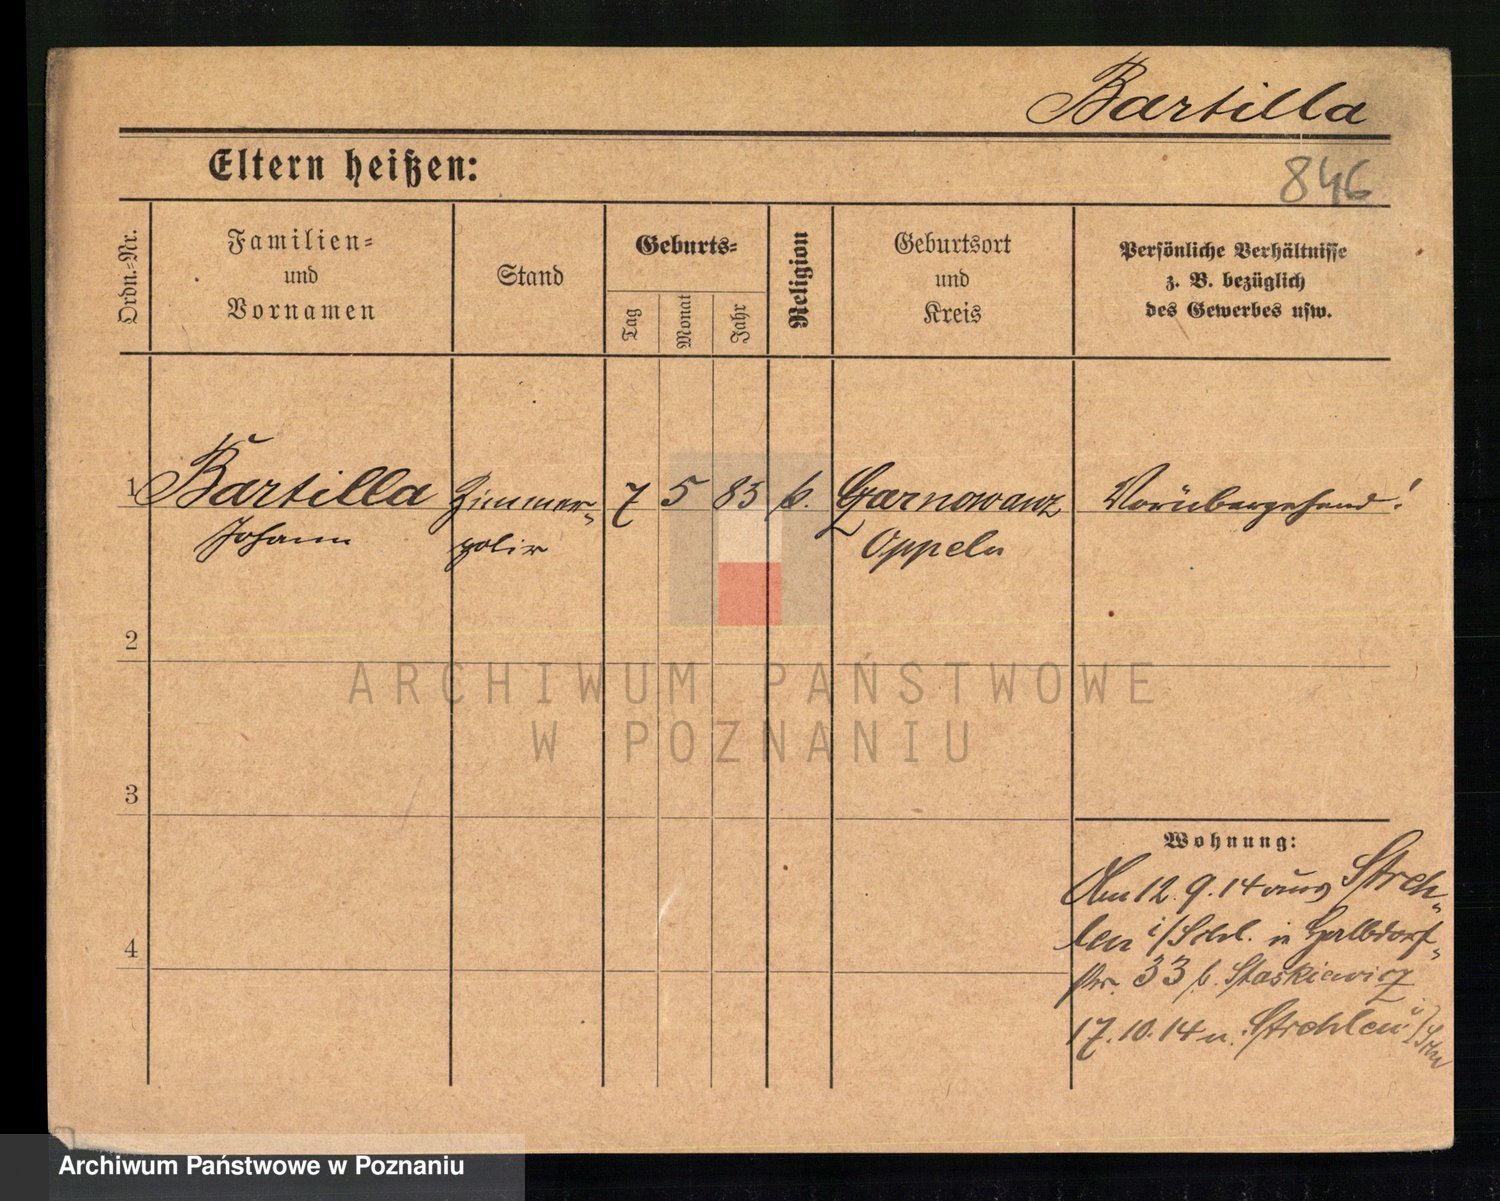 Bartilla
Eltern heißen:
846
Ordn.-Nr.
Familien-
und
Vornamen
Stand
Geburts-
Tag
Monat
Jahr
Religion
Geburtsort
und
Kreis
Persönliche Verhältnisse
z. B. bezüglich
des Gewerbes usw.
1 Bartilla Zimmer- 7 5 83 k. Czarnowanz Vorübergehend!
Johann polir Oppeln
2
ARCHIWUM PAŃSTWOWE
W POZNANIU
3
Wohnung:
Am 12.9.14 aus Streh-
len i/Schl. in Halbdorf-
str. 33 b. Staskiewicz
4
17.10.14 n. Strehlen i/Schl
Archiwum Państwowe w Poznaniu